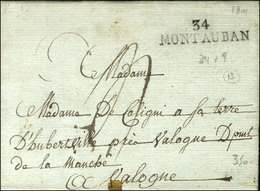 34
MONTAUBAN
Madame
Madame De Caligni a sa terre
D'hubertville près valogne Dpmt
de la manche
a Valogne
13
350